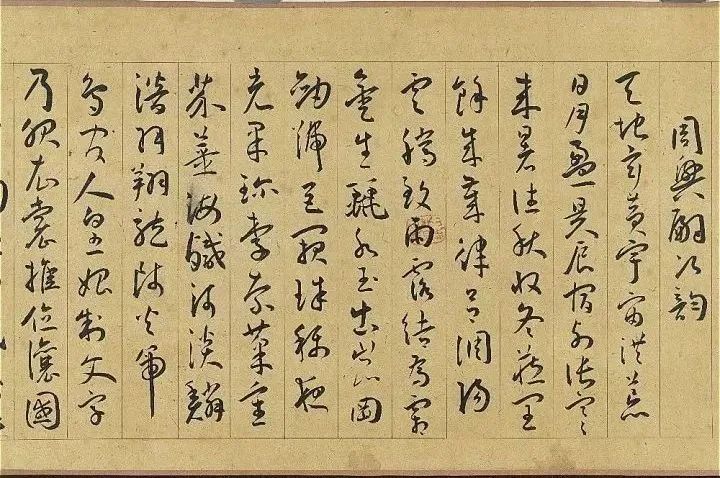 周興嗣次韵
天地玄黃宇宙洪荒
日月盈昃辰宿列張寒
來暑往秋收冬藏閏
餘成歲律呂調陽
雲騰致雨露結為霜
金生麗水玉出崑岡
劍號巨闕珠稱夜
光果珍李柰菜重
芥薑海鹹河淡鱗
潛羽翔龍師火帝
鳥官人皇始制文字
乃服衣裳推位讓國